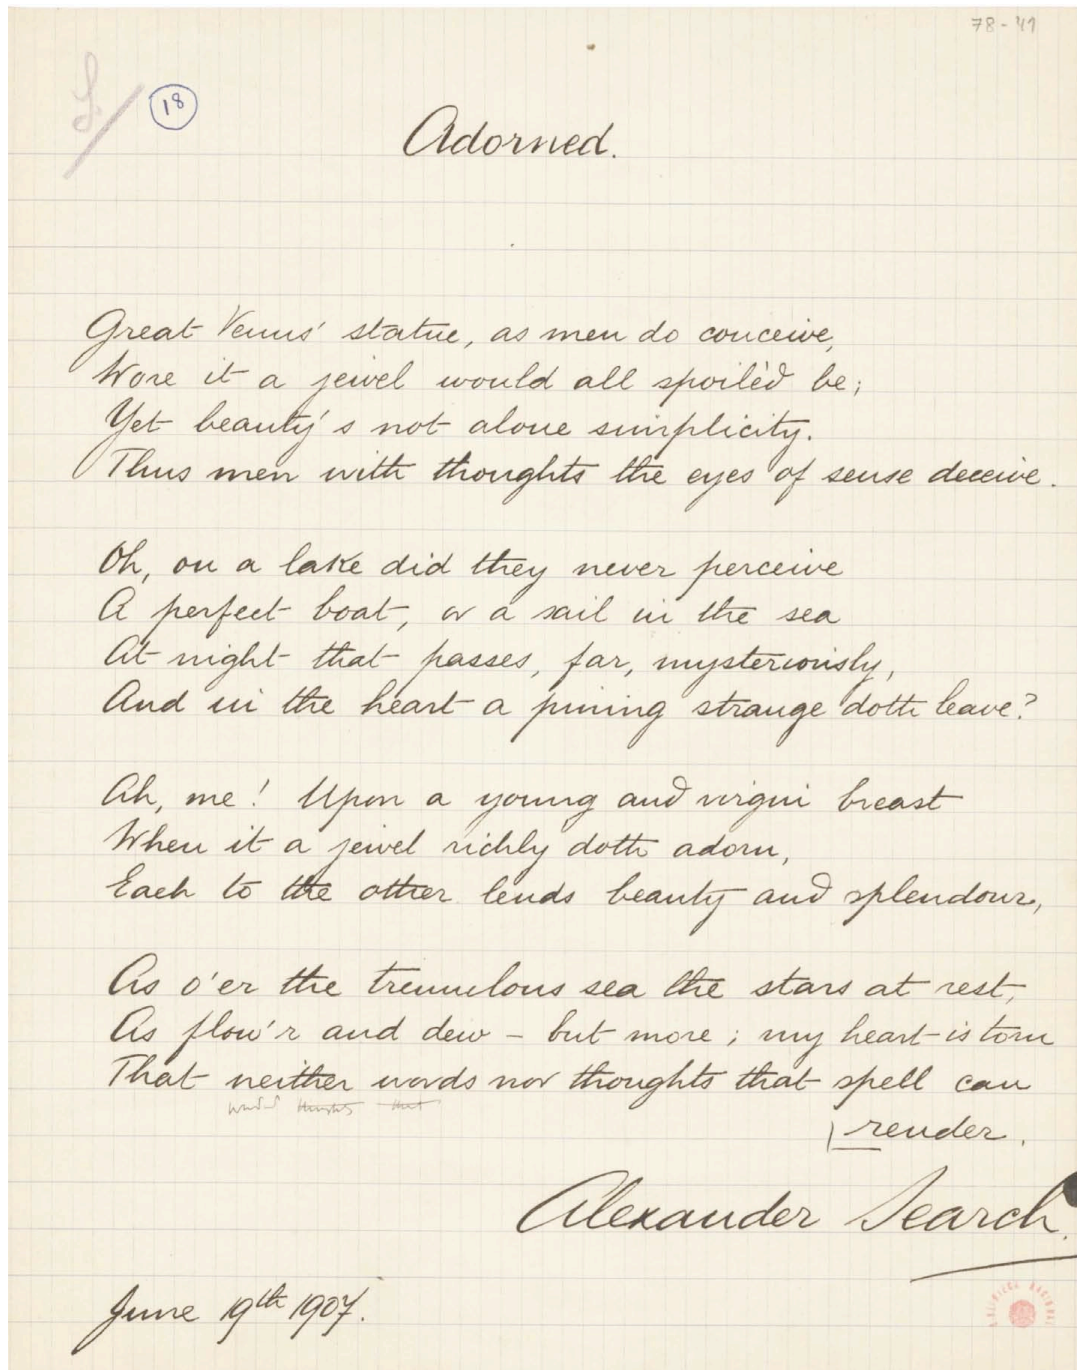 78-41
18
Adorned.
Great Venus' statue, as men do conceive,
Wore it a jewel would all spoilèd be;
Yet beauty's not alone simplicity.
Thus men with thoughts the eyes of sense deceive.
Oh, on a lake did they never perceive
A perfect boat, or a sail in the sea
At night that passes, far, mysteriously,
And in the heart a pining strange doth leave?
Ah, me! Upon a young and virgin breast
When it a jewel richly doth adorn,
Each to the other lends beauty and splendour,
As o'er the tremulous sea the stars at rest,
As flow'r and dew – but more; my heart is torn
That neither words nor thoughts that spell can
thoughts that
render.
Alexander Search.
June 19th 1907.
BIBLIOTECA NACIONAL